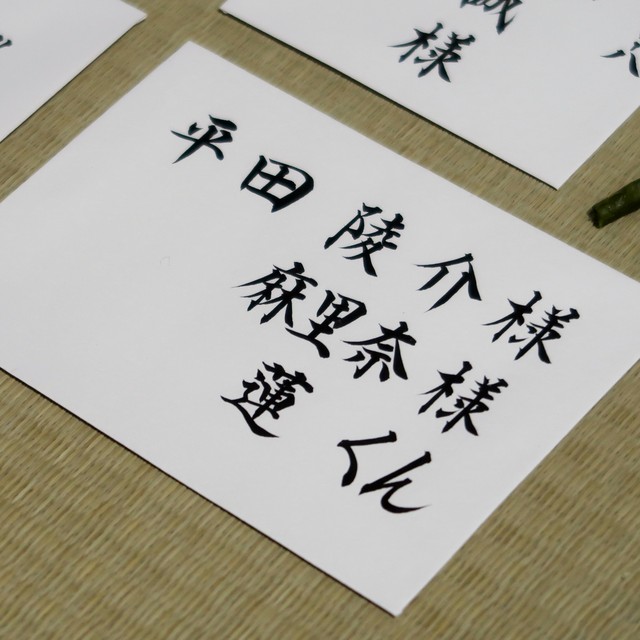 平田陵介様
麻里奈様
蓮くん
様